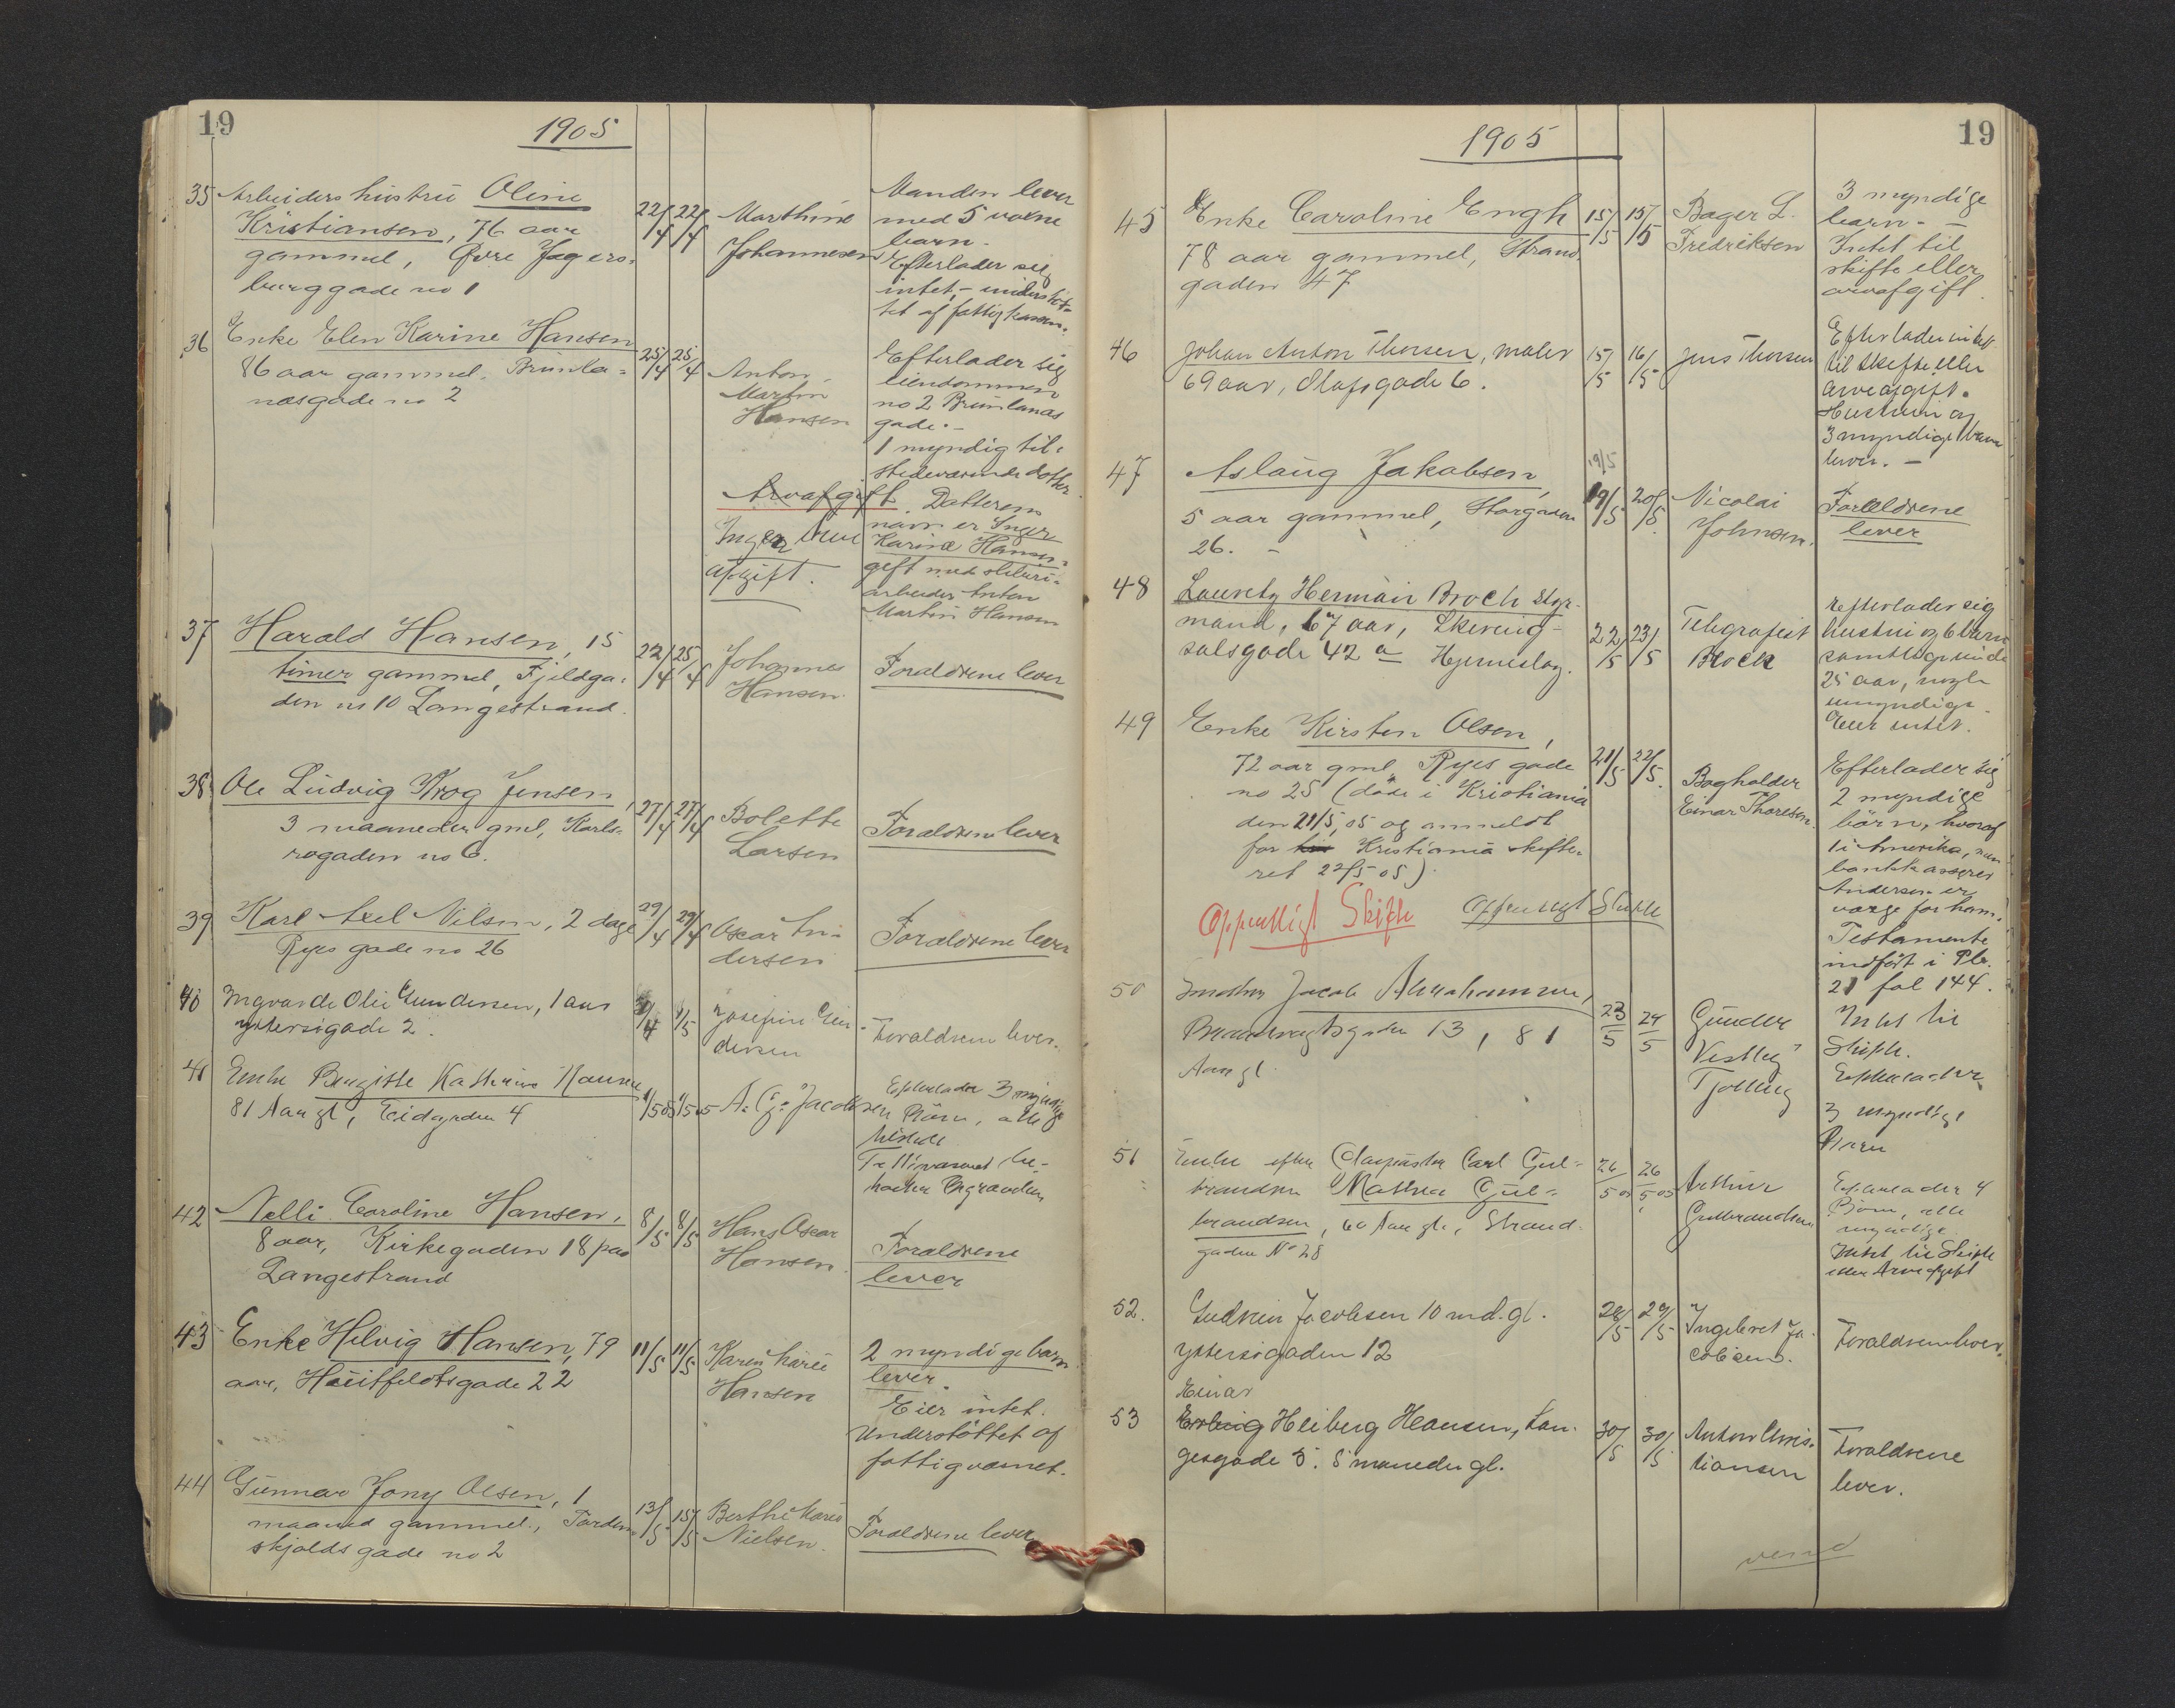 19
1905
35 Arbeiders hustru Oline
Kristiansen, 76 aar
gammel, Øvre Jegers-
borggade no 1
22/4 22/4
Marthine
Johannesen
Manden lever
med 5 voxne
barn.
Efterlader sig
intet, - understøt-
tet af fattigkassen.
36 Enke Elen Karine Hansen
86 aar gammel, Brunla-
næsgade no 2
25/4 25/4
Anton
Martin
Hansen
Efterlader sig
eiendommen
no 2 Brunlanæs
gade. -
1 myndig til-
stedeværende datter.
Arvafgift. Datterens
navn er Inger
Karine Hansen,
gift med sliberi-
arbeider Anton
Martin Hansen
Ingen Arve
afgift.
37 Harald Hansen, 15
timer gammel, Fjeldga-
den no 10 Langestrand.
22/4 25/4
Johannes
Hansen.
Forældrene lever
38 Ole Ludvig Krog Jensen,
3 maaneder gml, Karls-
rogaden no 6.
27/4 27/4
Bolette
Larsen
Forældrene lever
39 Karl Axel Nilsen, 2 dage
Ryes gade no 26
29/4 29/4
Oscar An-
dersen
Forældrene lever
40 Ingvarde Olie Gundersen, 1 aar
ystersigade 2.
/4 1/5
Josefine Gun-
dersen
Forældrene lever.
41 Enke Birgitte Kathrine Hansen
81 Aar gl, Eidgaden 4
1/5 05 1/5 05
A. G. Jacobsen
Efterlader 3 myndige
Børn, alle
tilstede
42 Nelli Caroline Hansen,
8 aar, Kirkegaden 18 paa
Langestrand
8/5 8/5
Hans Oscar
Hansen.
Forældrene
lever
43 Enke Helvig Hansen, 79
aar, Hüitfeldtsgade 22
11/5 11/5
Karen Marie
Hansen
2 myndige barn
lever.
Eier intet.
Understøttet af
fattigvæsnet.
44 Gunnar Jony Olsen, 1
maaned gammel, Torden-
skjolds gade no 2
13/5 15/5
Berthe Marie
Nielsen.
Forældrene lever
19
1905
45 Enke Caroline Engh
78 aar gammel, Strand-
gaden 47
15/5 15/5
Bager L.
Fredriksen
3 myndige
barn. -
Intet til
skifte eller
arvafgift.
46 Johan Anton Thorsen, maler
69 aar, Olafsgade 6.
15/5 16/5
Jens Thorsen
Efterlader intet
til skifte eller
arveafgift.
Hustru og
3 myndige barn
lever. -
47 Aslaug Jakobsen,
5 aar gammel, Storgaden
26. -
19/5
19/5 20/5
Nicolai
Johnsen.
Forældrene
lever
48 Lauretz Herman Broch styr-
mand, 67 aar, Skrening-
salsgade 42 a Hjerneslag.
22/5 23/5
Telegrafist
Broch
Efterlader sig
hustru og 6 barn
samtlige under
25 aar, nogle
umyndige.
Eier intet.
49 Enke Kirsten Olsen,
72 aar gml Ryes gade
no 25 (døde i Kristiania
den 21/5 05 og anmeldt
for Kristiania skifte-
ret 22/5 05).
21/5 22/5.
Bogholder
Einar Thoresen.
Efterlader sig
2 myndige
børn, hvoraf
1 i Amerika,
bankkasserer
Andersen er
værge for ham.
Testamente
indført i Ptr.
21 fol 144.
Offentligt Skifte
Offentligt Skifte
50 Jacob Abrahamsen,
Brandvagtsgaden 13, 81
Aar gl.
23/5 24/5
Gunder
Vestby
Tjølling
Intet til
Skifte.
Efterlader
3 myndige
Børn
51 Enke efter Carl Gul-
brandsen Mathea Gul-
brandsen, 60 Aar gl., Strand-
gaden No 28
26/5 05 26/5 05
Arthur
Gulbrandsen
Efterlader 4
Børn, alle
myndige
Intet til Skifte
eller Arveafgift
52. Gudrun Jacobsen 10 md. gl.
ystersøgaden 12
28/5 29/5
Ingebret Ja-
cobsen.
Forældrene lever.
Einar
53 Erling Heiberg Hansen, Lan-
gesgade 5. 8 maneder gl.
30/5 30/5
Anton Chris-
tiansen
Forældrene
lever.
vend